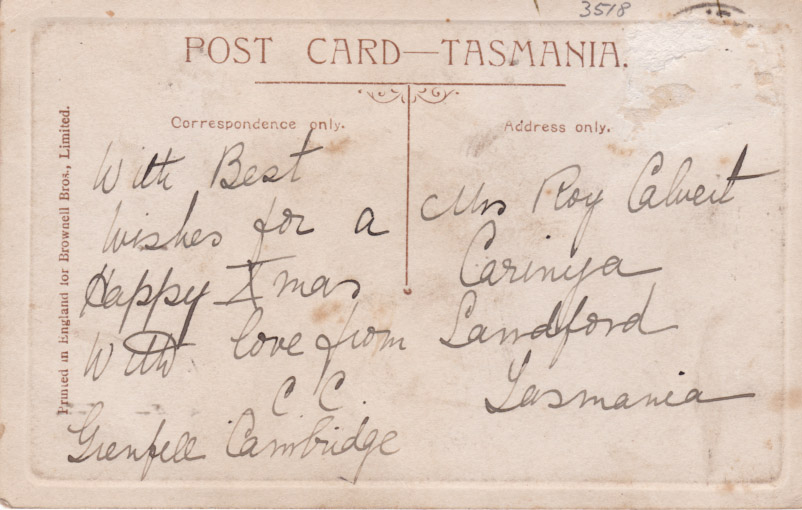 3518
POST CARD—TASMANIA.
Correspondence only.
Address only.
Printed in England for Brownell Bros., Limited.
With Best
Wishes for a
Happy Xmas
With love from
C C.
Grenfell Cambridge
Mrs Roy Calvert
Carinya
Sandford
Tasmania